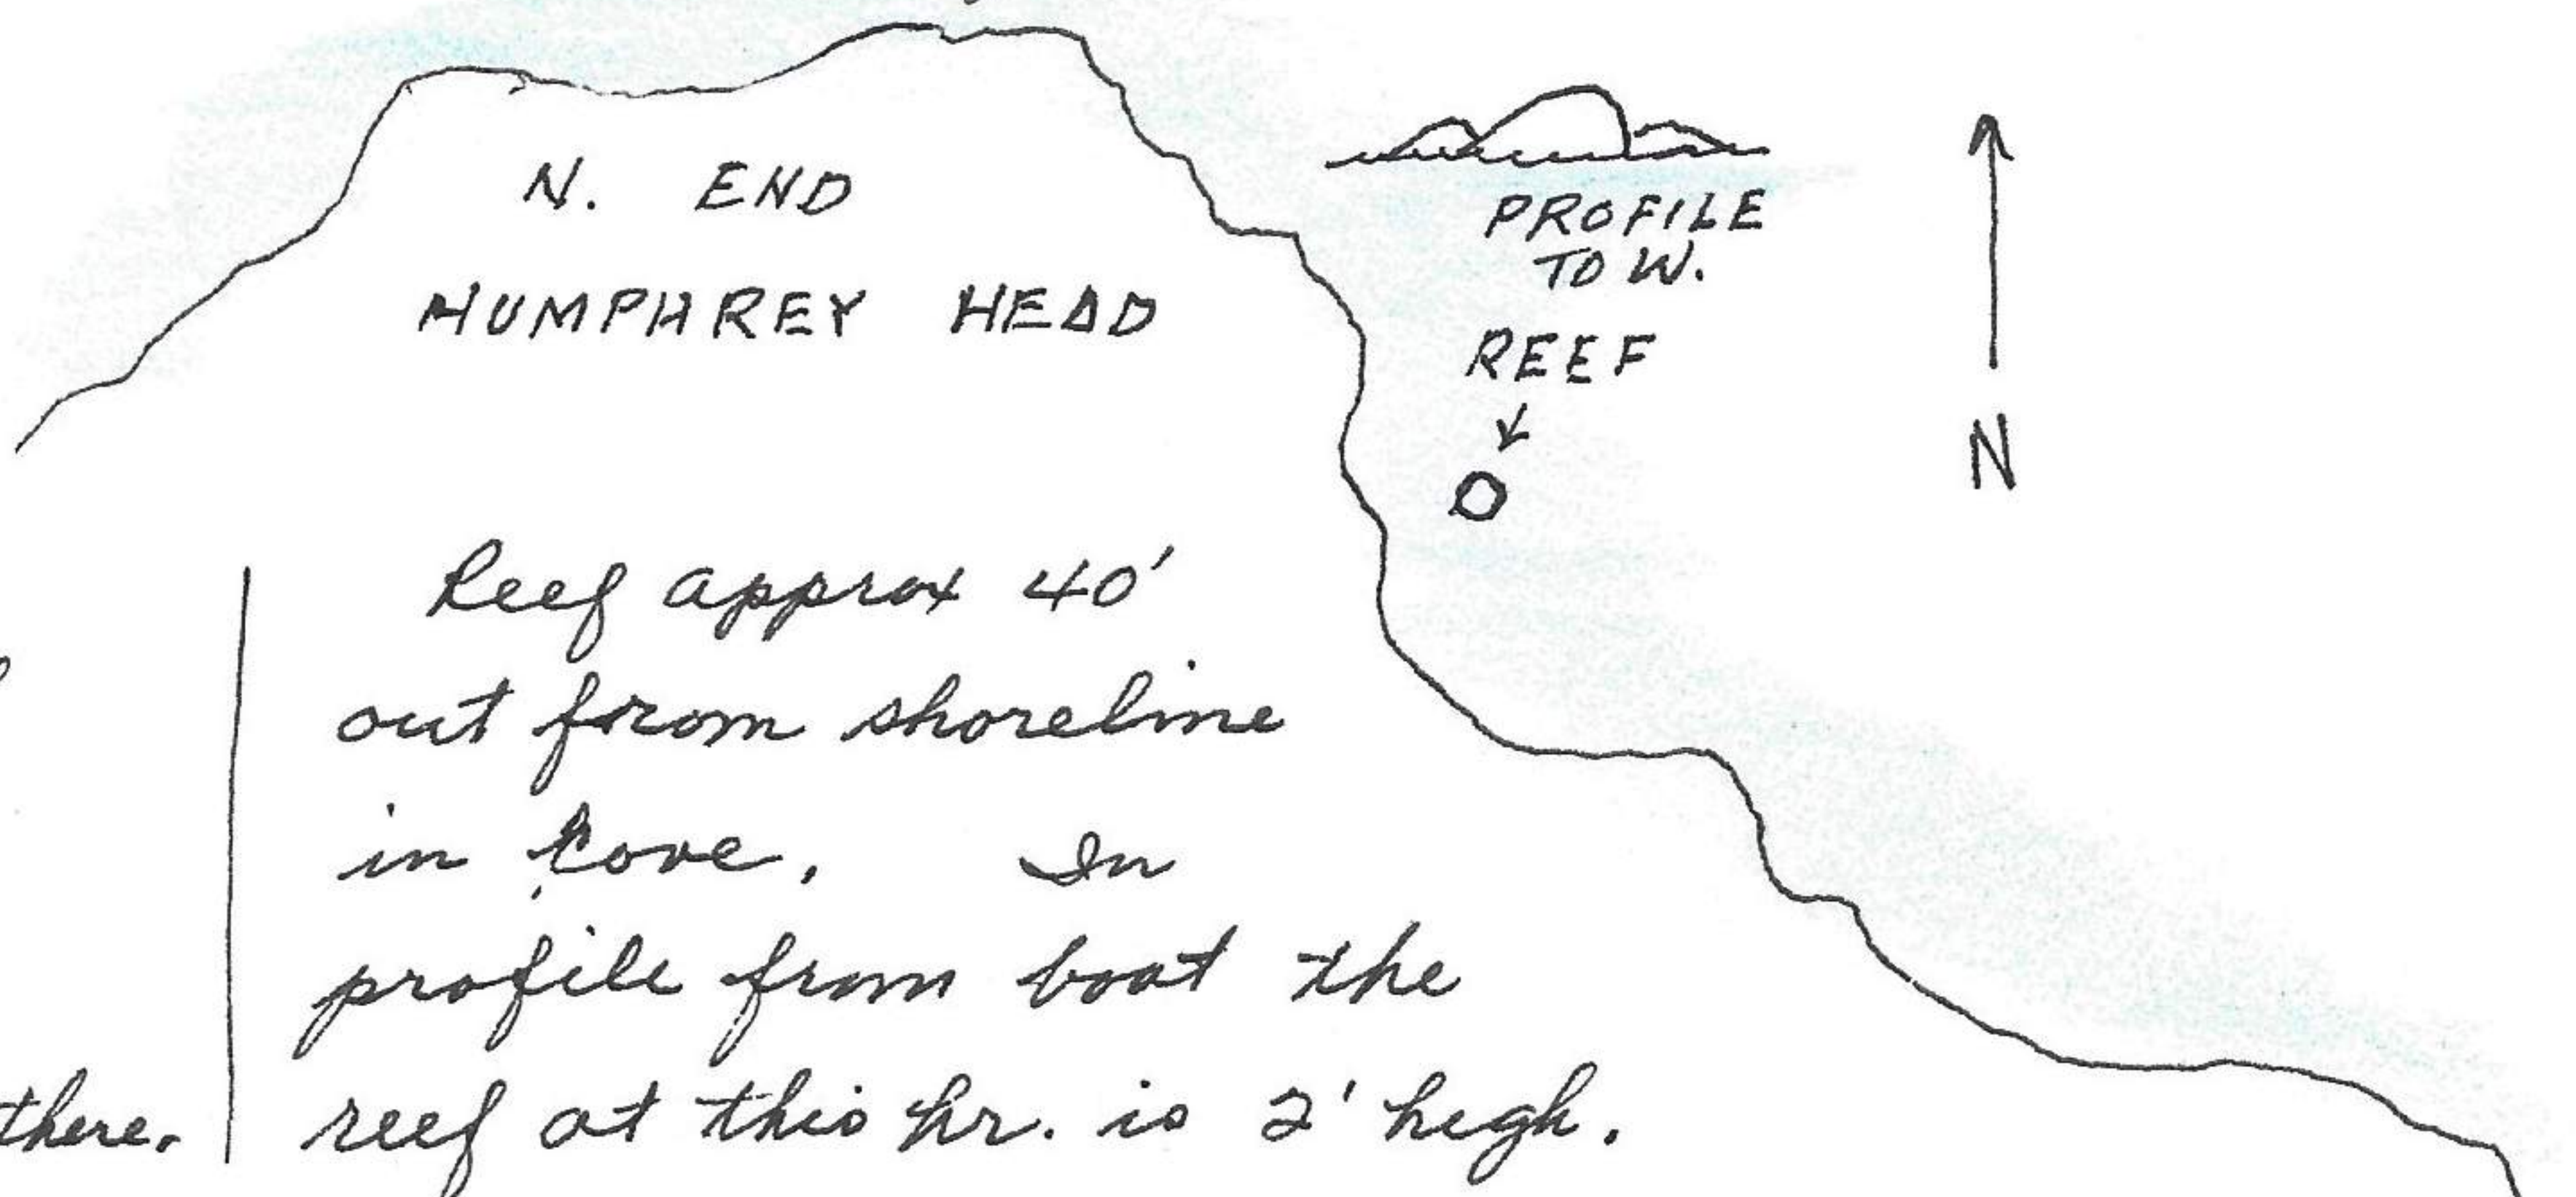 N. END
HUMPHREY HEAD
PROFILE
TO W.
REEF
N
Reef approx 40'
out from shoreline
in cove. In
profile from boat the
reef at this hr. is 2' high.
there.